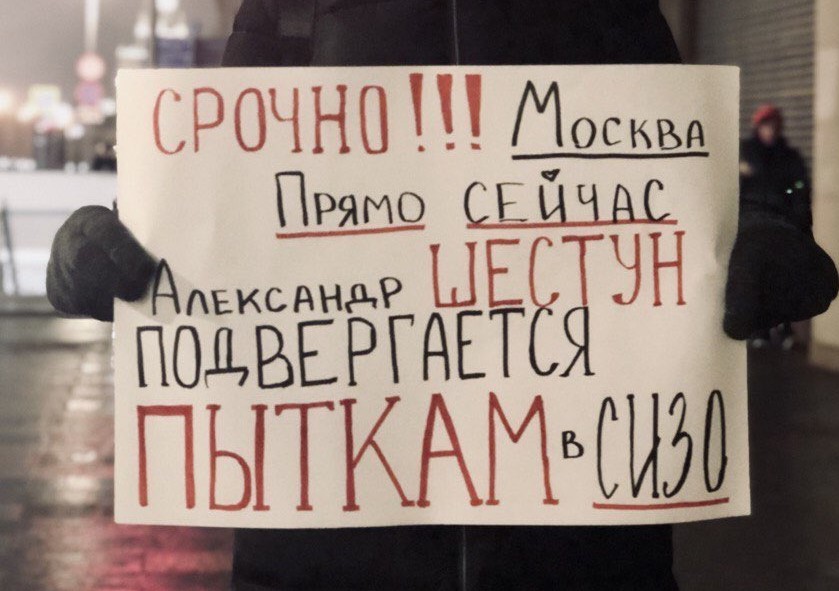 СРОЧНО!!! МОСКВА
ПРЯМО СЕЙЧАС
АЛЕКСАНДР ШЕСТУН
ПОДВЕРГАЕТСЯ
ПЫТКАМ В СИЗО